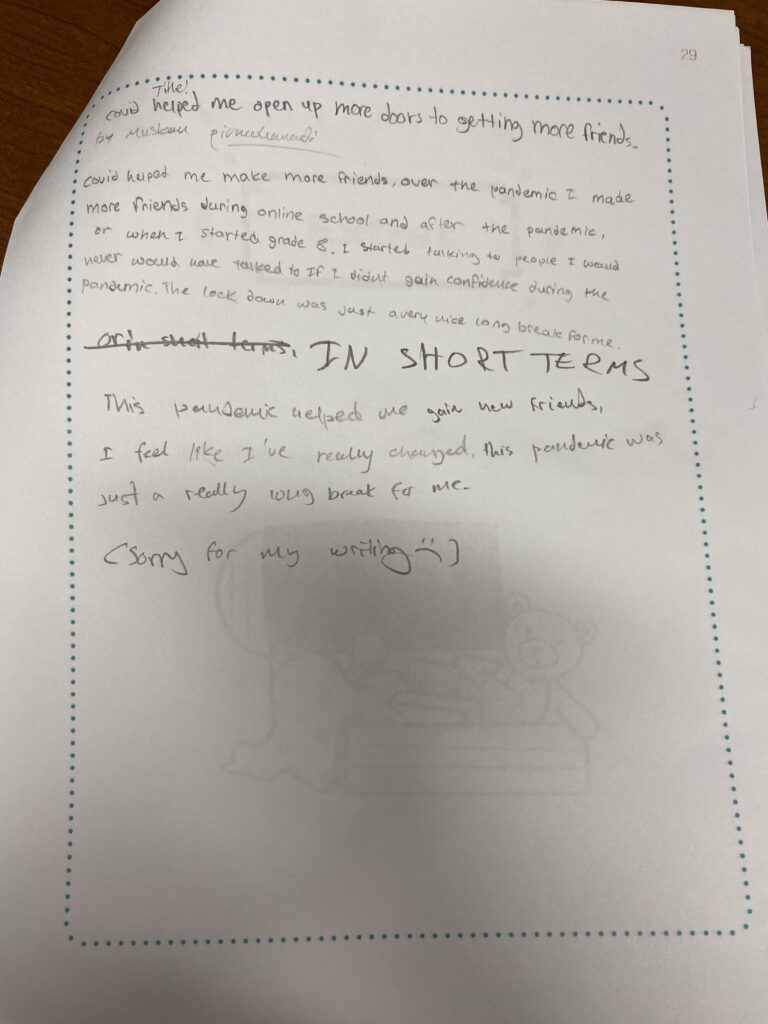 29
Title:
covid helped me open up more doors to getting more friends.
by Muskan
covid helped me make more friends, over the pandemic I made
more friends during online school and after the pandemic,
or when I started grade 8. I started talking to people I would
never would have talked to If I didnt gain confidence during the
pandemic. The lock down was just a very nice long break for me.
or in short terms, IN SHORT TERMS
This pandemic helped me gain new friends,
I feel like I've really changed, this pandemic was
just a really long break for me.
(Sorry for my writing :( )